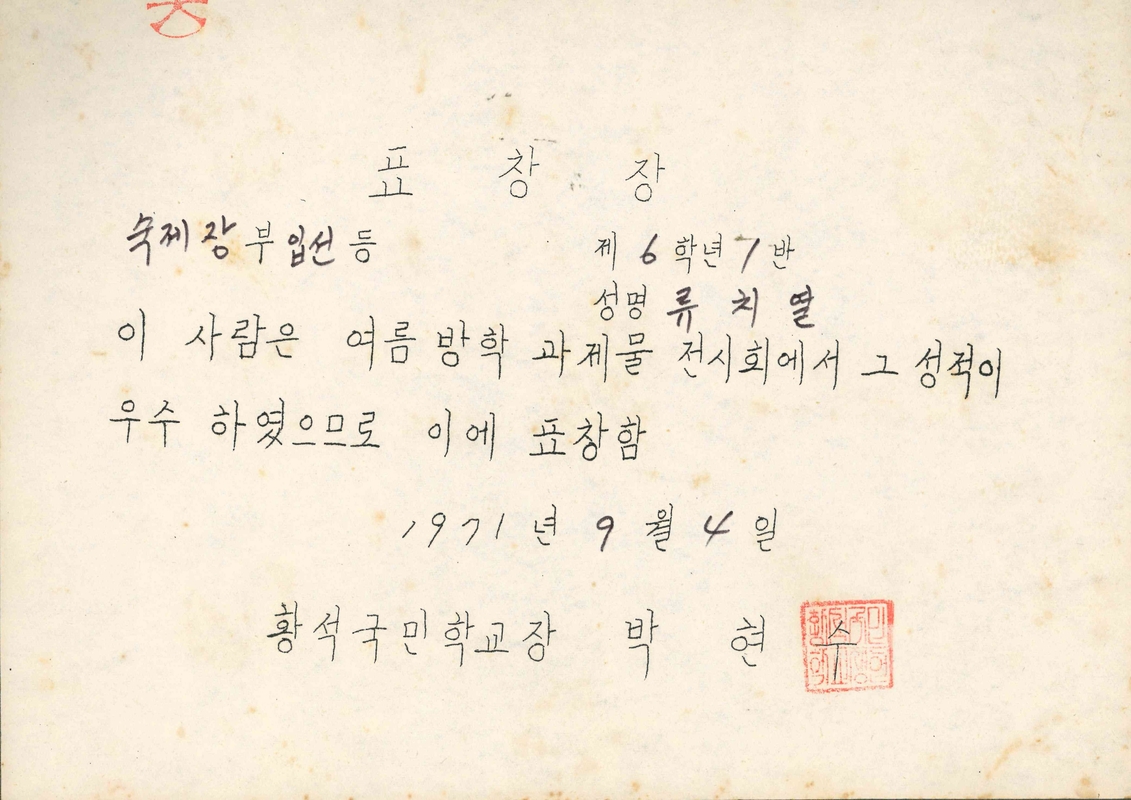 표 창 장
숙제장 부 입선 등
제 6 학년 7 반
성명 류 치 열
이 사람은 여름 방학 과제물 전시회에서 그 성적이
우수 하였으므로 이에 표창함
1971 년 9 월 4 일
황석국민학교장 박 현 수